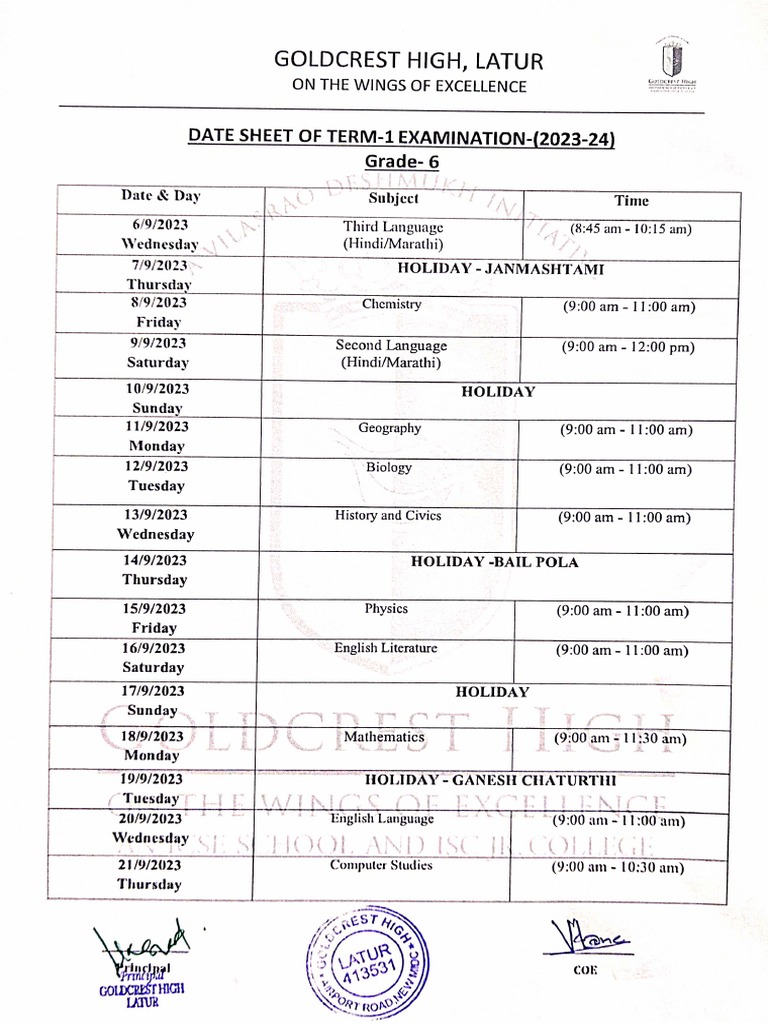 GOLDCREST HIGH, LATUR
ON THE WINGS OF EXCELLENCE
GOLDCREST HIGH
DATE SHEET OF TERM-1 EXAMINATION-(2023-24)
Grade- 6
A VILASRAO DESHMUKH INITIATIVE
Date & Day Subject Time
6/9/2023 Third Language (8:45 am - 10:15 am)
Wednesday (Hindi/Marathi)
7/9/2023 HOLIDAY - JANMASHTAMI
Thursday
8/9/2023 Chemistry (9:00 am - 11:00 am)
Friday
9/9/2023 Second Language (9:00 am - 12:00 pm)
Saturday (Hindi/Marathi)
10/9/2023 HOLIDAY
Sunday
11/9/2023 Geography (9:00 am - 11:00 am)
Monday
12/9/2023 Biology (9:00 am - 11:00 am)
Tuesday
13/9/2023 History and Civics (9:00 am - 11:00 am)
Wednesday
14/9/2023 HOLIDAY -BAIL POLA
Thursday
15/9/2023 Physics (9:00 am - 11:00 am)
Friday
16/9/2023 English Literature (9:00 am - 11:00 am)
Saturday
17/9/2023 HOLIDAY
Sunday
GOLDCREST HIGH
18/9/2023 Mathematics (9:00 am - 11:30 am)
Monday
19/9/2023 HOLIDAY - GANESH CHATURTHI
Tuesday
ON THE WINGS OF EXCELLENCE
20/9/2023 English Language (9:00 am - 11:00 am)
Wednesday
SCHOOL AND ISC JR. COLLEGE
21/9/2023 Computer Studies (9:00 am - 10:30 am)
Thursday
Principal
Principal
GOLDCREST HIGH
LATUR
GOLDCREST HIGH
LATUR
413531
AIRPORT ROAD, NEW MIDC
COE